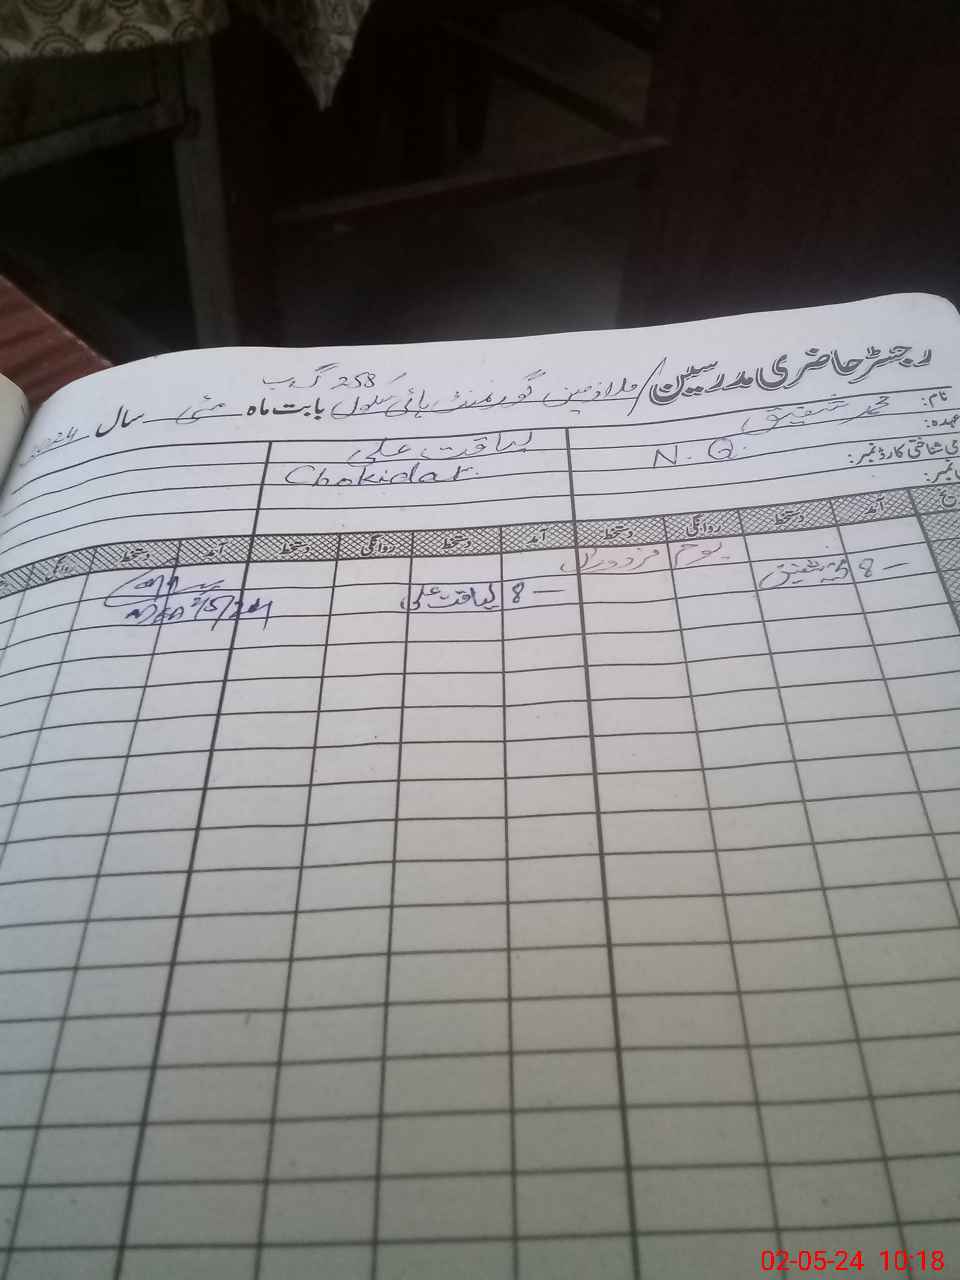 رجسٹر حاضری مدرسین / ملازمین گورنمنٹ ہائی سکول 258 گ ب بابت ماہ مئی سال 2024
نام: محمد شفیق لیاقت علی
عہدہ: N.Q. Chokidar
شناختی کارڈ نمبر:
نمبر:
آمد دستخط روانگی دستخط آمد دستخط روانگی دستخط آمد دستخط روانگی
یوم مزدوراں
8 - شفیق 8 - لیاقت علی
2/5/24
02-05-24 10:18